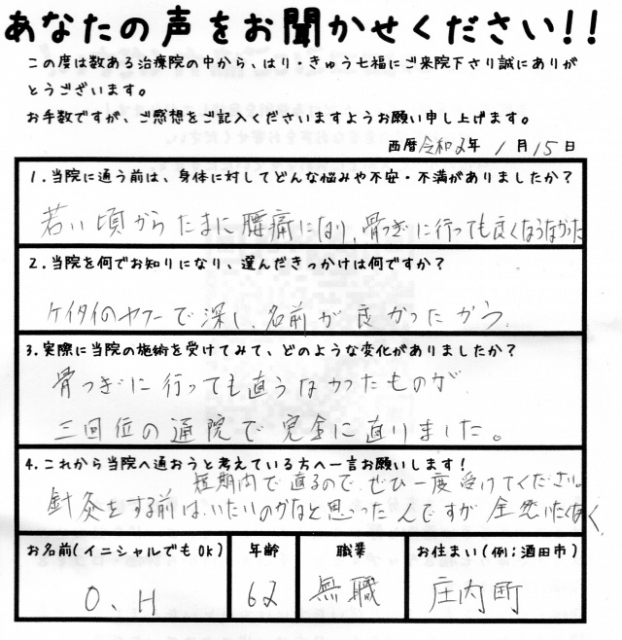 あなたの声をお聞かせください!!
この度は数ある治療院の中から、はり・きゅう七福にご来院下さり誠にありが
とうございます。
お手数ですが、ご感想をご記入くださいますようお願い申し上げます。
西暦令和2年 1月15日
1.当院に通う前は、身体に対してどんな悩みや不安・不満がありましたか?
若い頃からたまに腰痛になり、骨つぎに行っても良くならなかった
2.当院を何でお知りになり、選んだきっかけは何ですか?
ケイタイのヤフーで深し、名前が良かったから、
3.実際に当院の施術を受けてみて、どのような変化がありましたか?
骨つぎに行っても直らなかったものが
三回位の通院で完全に直りました。
4.これから当院へ通おうと考えている方へ一言お願いします!
短期内で直るので、ぜひ一度受けてください。
針灸をする前は、いたいのかなと思ったんですが全然いたくなく、
お名前(イニシャルでもOK) 年齢 職業 お住まい(例;酒田市)
O、H 62 無職 庄内町